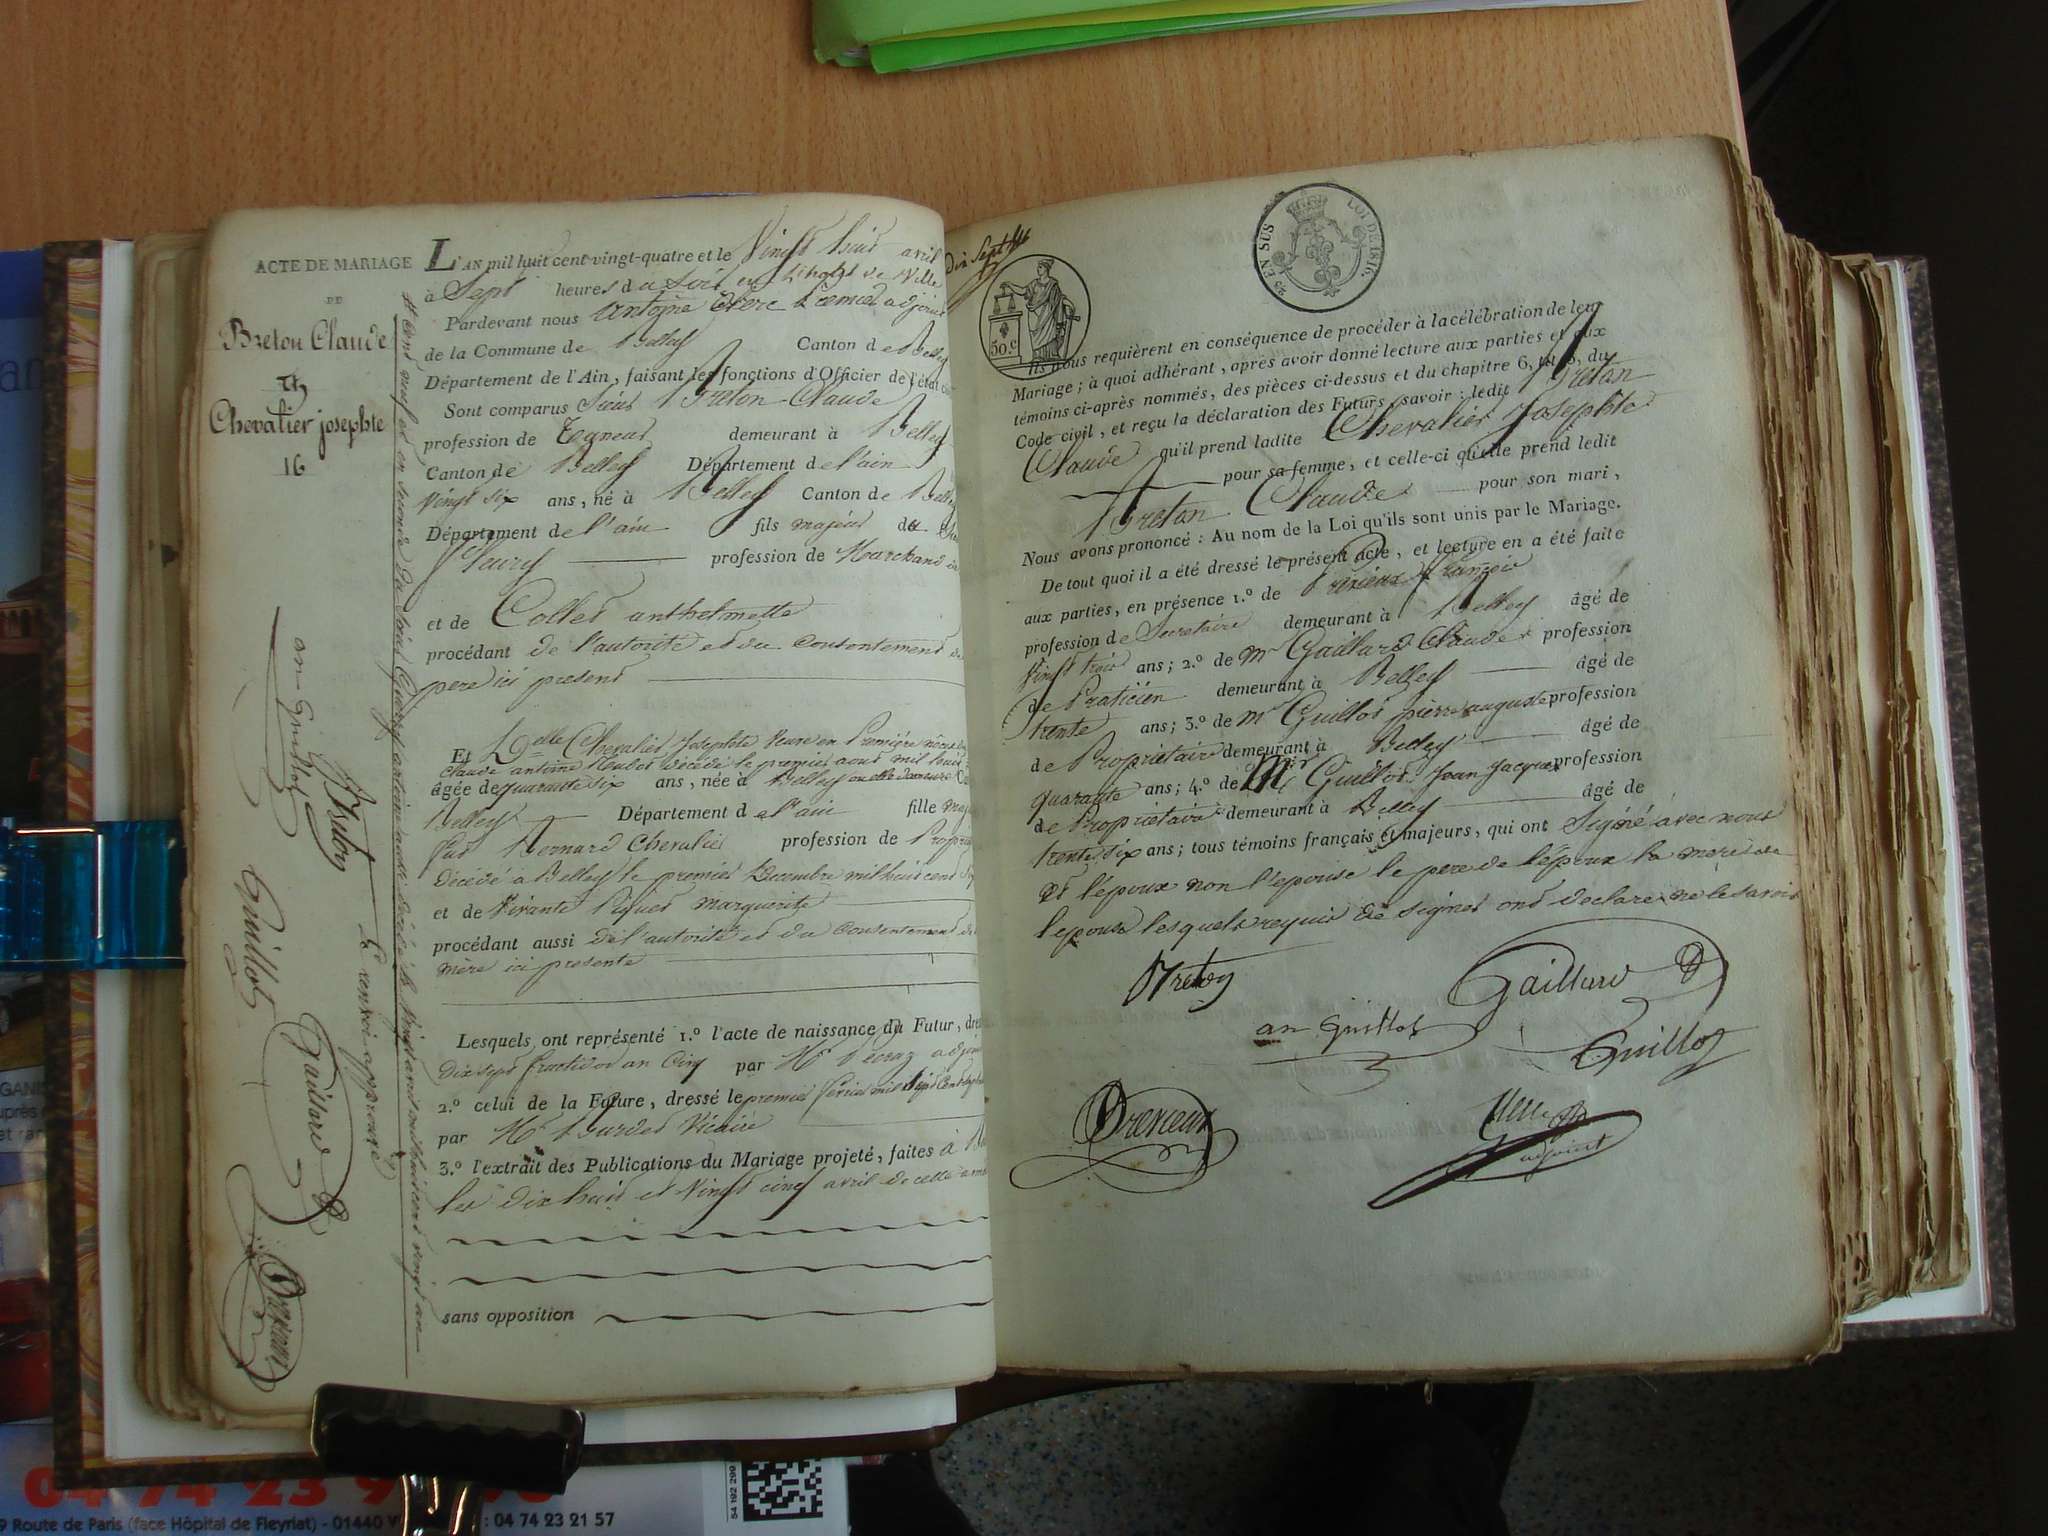 ACTE DE MARIAGE
DE
Breton Claude
&
Chevalier josephte
16
L'AN mil huit cent-vingt-quatre et le Vingt huit avril
à Sept heures du Soir en L'hotel de Ville
Pardevant nous antoine Clerc Premier adjoint
de la Commune de Belley Canton de Belley
Département de l'Ain, faisant les fonctions d'Officier de l'état
Sont comparus Sieur Breton Claude
profession de Taneur demeurant à Belley
Canton de Belley Département de l'ain
Vingt six ans, né à Belley Canton de Belley
Département de l'ain fils majeur du
fleury profession de Marchand
et de Collet anthelmette
procédant de l'autorité et du Consentement de
pere ici present
Et Delle Chevalier Josephte Veuve en Première nôces
Claude antoine décédé le premier aout mil huit
âgée de quarante six ans, née à Belley ou elle demeure
Belley Département de l'ain fille
feu Bernard Chevalier profession de
décédé a Belley le premier Décembre mil huit cent
et de Vivante Piquet marguerite
procédant aussi de l'autorité et du Consentement de
mère ici presente
Lesquels ont représenté 1.º l'acte de naissance du Futur,
dix sept fructidor an Cinq par Mr adjoint
2.º celui de la Future, dressé le premier fevrier mil Sept Cent
par Mr Burdet Vicaire
3.º l'extrait des Publications du Mariage projeté, faites à
les dix huit et Vingt cinq avril de cette
sans opposition
Breton
an Guillot
Guillot
Gaillard
Le renvoi approuvé
Dreveux
Dix Sept
50 c
EN SUS
LOI DE 1816.
Ils nous requièrent en conséquence de procéder à la célébration de leur
Mariage; à quoi adhérant, après avoir donné lecture aux parties et aux
témoins ci-après nommés, des pièces ci-dessus et du chapitre 6, tit. 5, du
Code civil, et reçu la déclaration des Futurs, savoir: ledit Breton
Claude qu'il prend ladite Chevalier Josephte
pour sa femme, et celle-ci qu'elle prend ledit
Breton Claude pour son mari,
Nous avons prononcé: Au nom de la Loi qu'ils sont unis par le Mariage.
De tout quoi il a été dressé le présent acte, et lecture en a été faite
aux parties, en présence 1.º de Dreveux françois
profession de Secretaire demeurant à Belley âgé de
Vingt trois ans; 2.º de Mr Gaillard Claude profession
de Praticien demeurant à Belley âgé de
trente ans; 3.º de Mr Guillot pierre auguste profession
de Propriétaire demeurant à Belley âgé de
quarante ans; 4.º de Mr Guillot Jean Jacques profession
de Propriétaire demeurant à Belley âgé de
trente six ans; tous témoins français et majeurs, qui ont Signé avec nous
et l'époux non l'epouse le pere de l'époux la mere de
l'epouse lesquels requis de signer ont declaré ne le savoir
Breton
Gaillard
an Guillot
Guillot
Dreveux
adjoint
04 74 23 9
9 Route de Paris (face Hôpital de Fleyriat) - 01440 V : 04 74 23 21 57